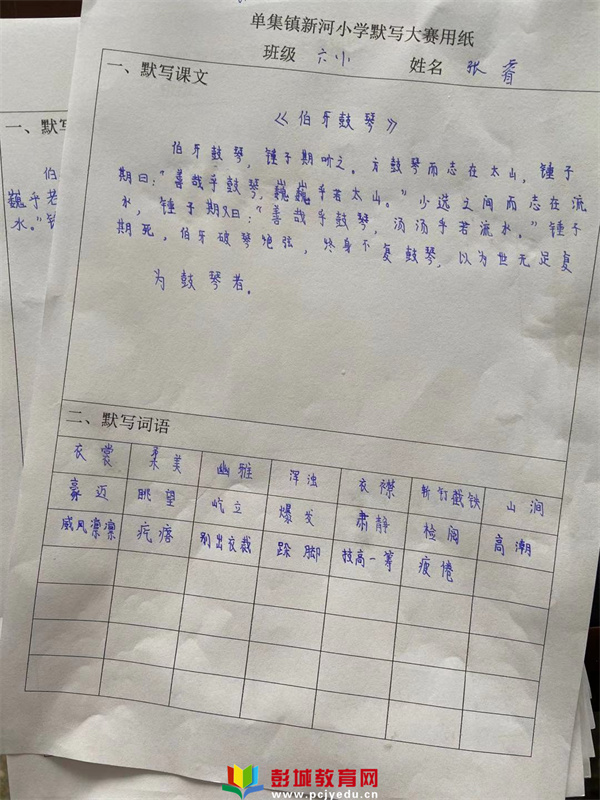 单集镇新河小学默写大赛用纸
班级 六小 姓名 张睿
一、默写课文
《伯牙鼓琴》
伯牙鼓琴，锺子期听之。方鼓琴而志在太山，锺子
期曰：“善哉乎鼓琴，巍巍乎若太山。”少选之间而志在流
水，锺子期又曰：“善哉乎鼓琴，汤汤乎若流水。”锺子
期死，伯牙破琴绝弦，终身不复鼓琴，以为世无足复
为鼓琴者。
二、默写词语
衣裳 柔美 幽雅 浑浊 衣襟 斩钉截铁 山涧
豪迈 眺望 屹立 爆发 肃静 检阅 高潮
威风凛凛 疙瘩 别出衣裁 跺脚 技高一筹 疲倦
一、默写
伯
巍乎若
水。”锺
彭城教育网
www.pcjyedu.cn